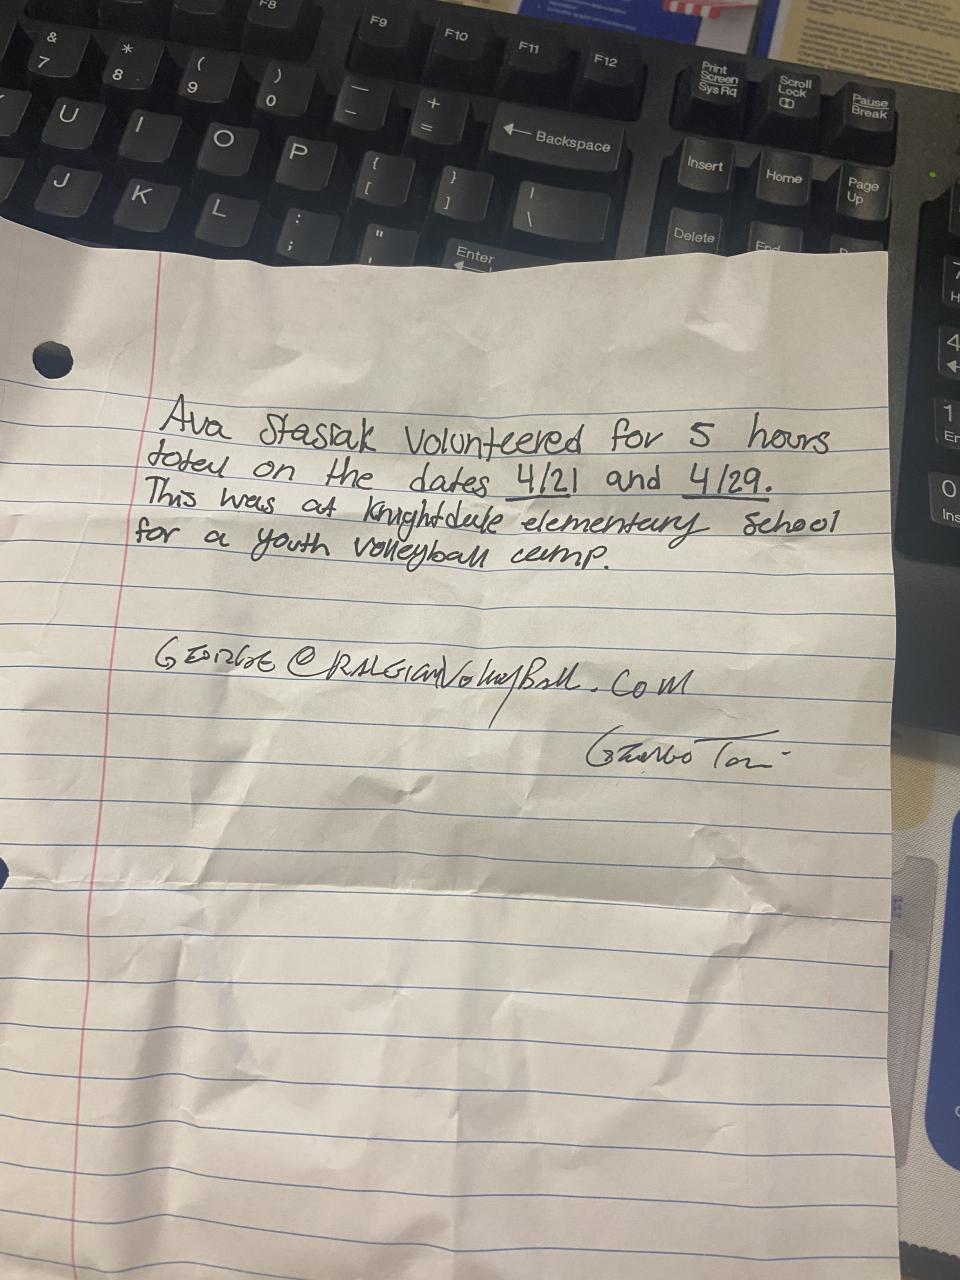 F8
F9
F10
F11
F12
Print Screen
Sys Rq
Scroll Lock
Pause
Break
& 7
* 8
( 9
) 0
— -
+ =
Backspace
Insert
Home
Page Up
U I O P
{ [
} ]
| \
Delete
End
J K L
: ;
" '
Enter
7
4
1
0
Ins
Ava Stasiak volunteered for 5 hours
toted on the dates 4/21 and 4/29.
This was at Knightdale elementary school
for a youth volleyball camp.
GEORGE@RALEIGHVolleyBall.COM